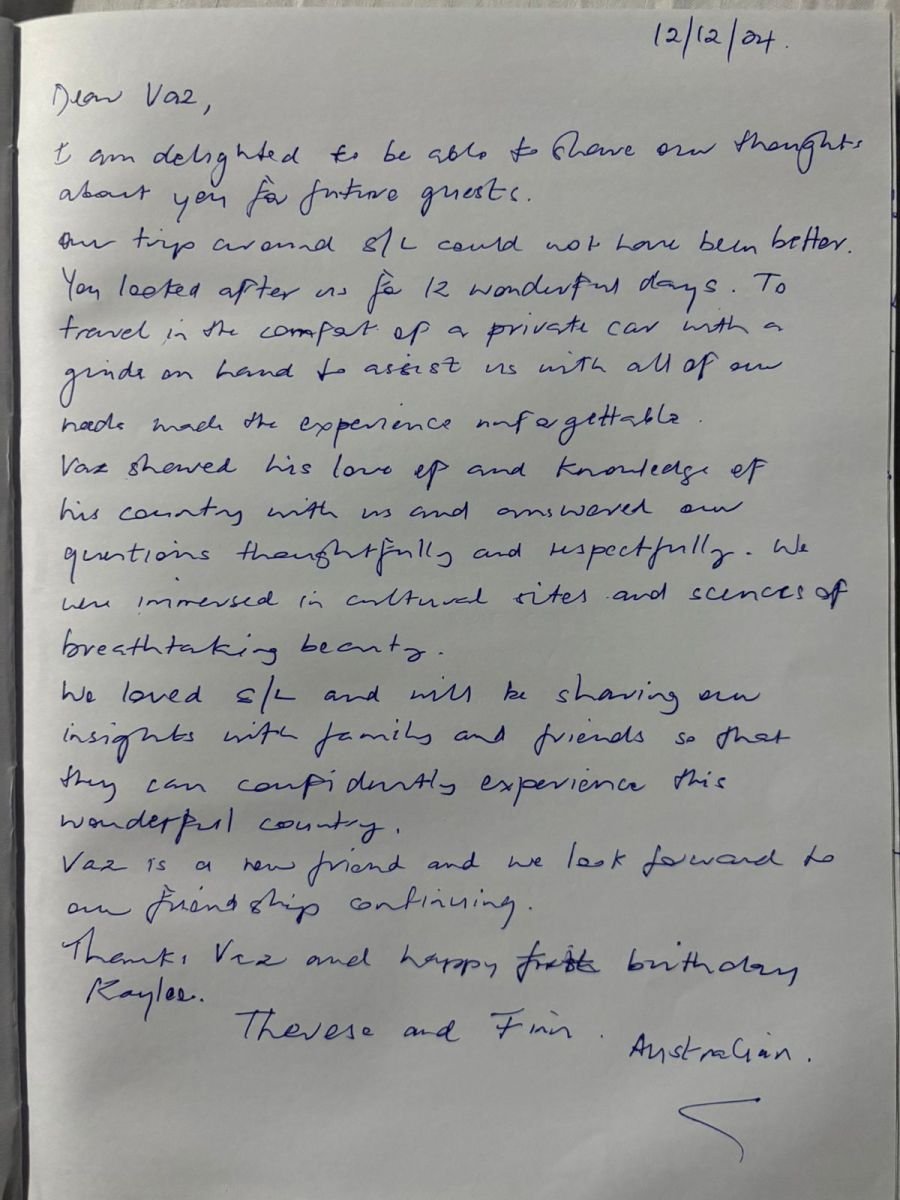 12/12/24.
Dear Vaz,
I am delighted to be able to share our thoughts
about you for future guests.
Our trip around S/L could not have been better.
You looked after us for 12 wonderful days. To
travel in the comfort of a private car with a
guide on hand to assist us with all of our
needs made the experience unforgettable.
Vaz showed his love of and knowledge of
his country with us and answered our
questions thoughtfully and respectfully. We
were immersed in cultural sites and scences of
breathtaking beauty.
We loved S/L and will be sharing our
insights with family and friends so that
they can confidently experience this
wonderful country.
Vaz is a new friend and we look forward to
our friendship continuing.
Thanks Vaz and happy birthday
Kaylee.
Therese and Finn.
Australian.